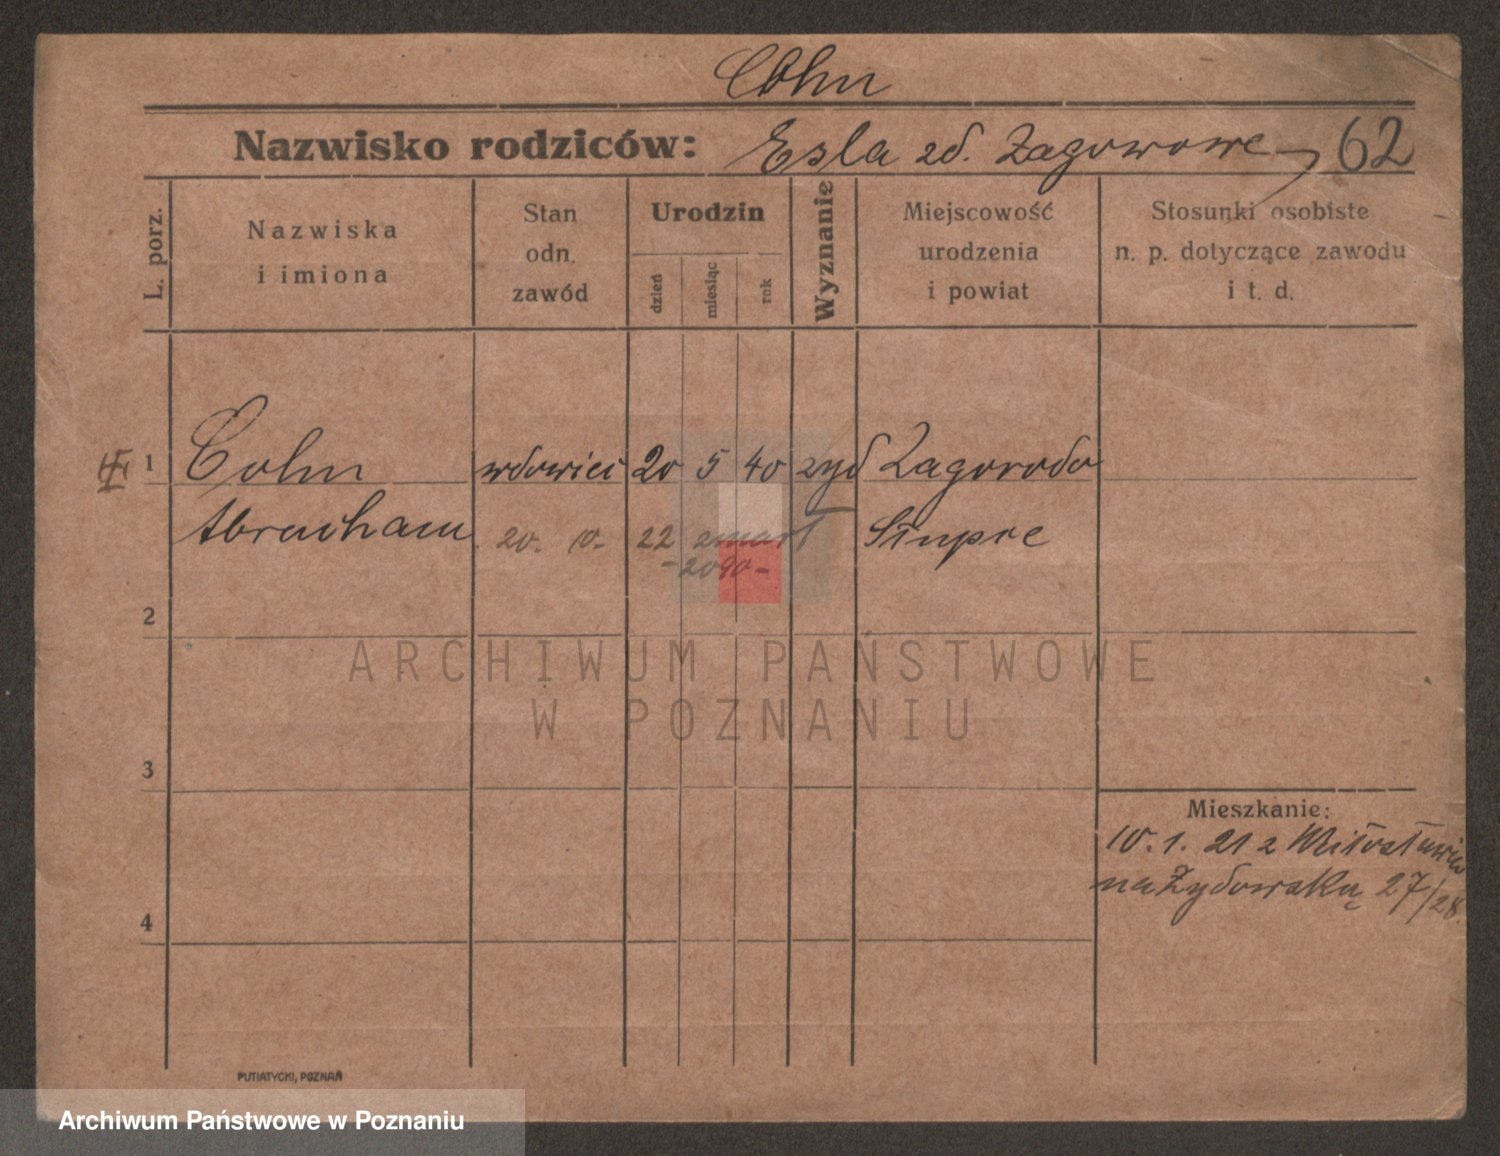 Cohn
Nazwisko rodziców: Esla zd. Zagorowowe 62
L. porz.
Nazwiska
i imiona
Stan
odn.
zawód
Urodzin
dzień
miesiąc
rok
Wyznanie
Miejscowość
urodzenia
i powiat
Stosunki osobiste
n. p. dotyczące zawodu
i t. d.
1 Cohn wdowiec 20 5 40 żyd Zagorodo
Abracham 20. 10. 22 zmarł Słupce
-2090-
2
ARCHIWUM PAŃSTWOWE
W POZNANIU
3
Mieszkanie:
10. 1. 21 z
na Żydowską 27/28.
4
PUTIATYCKI, POZNAŃ
Archiwum Państwowe w Poznaniu